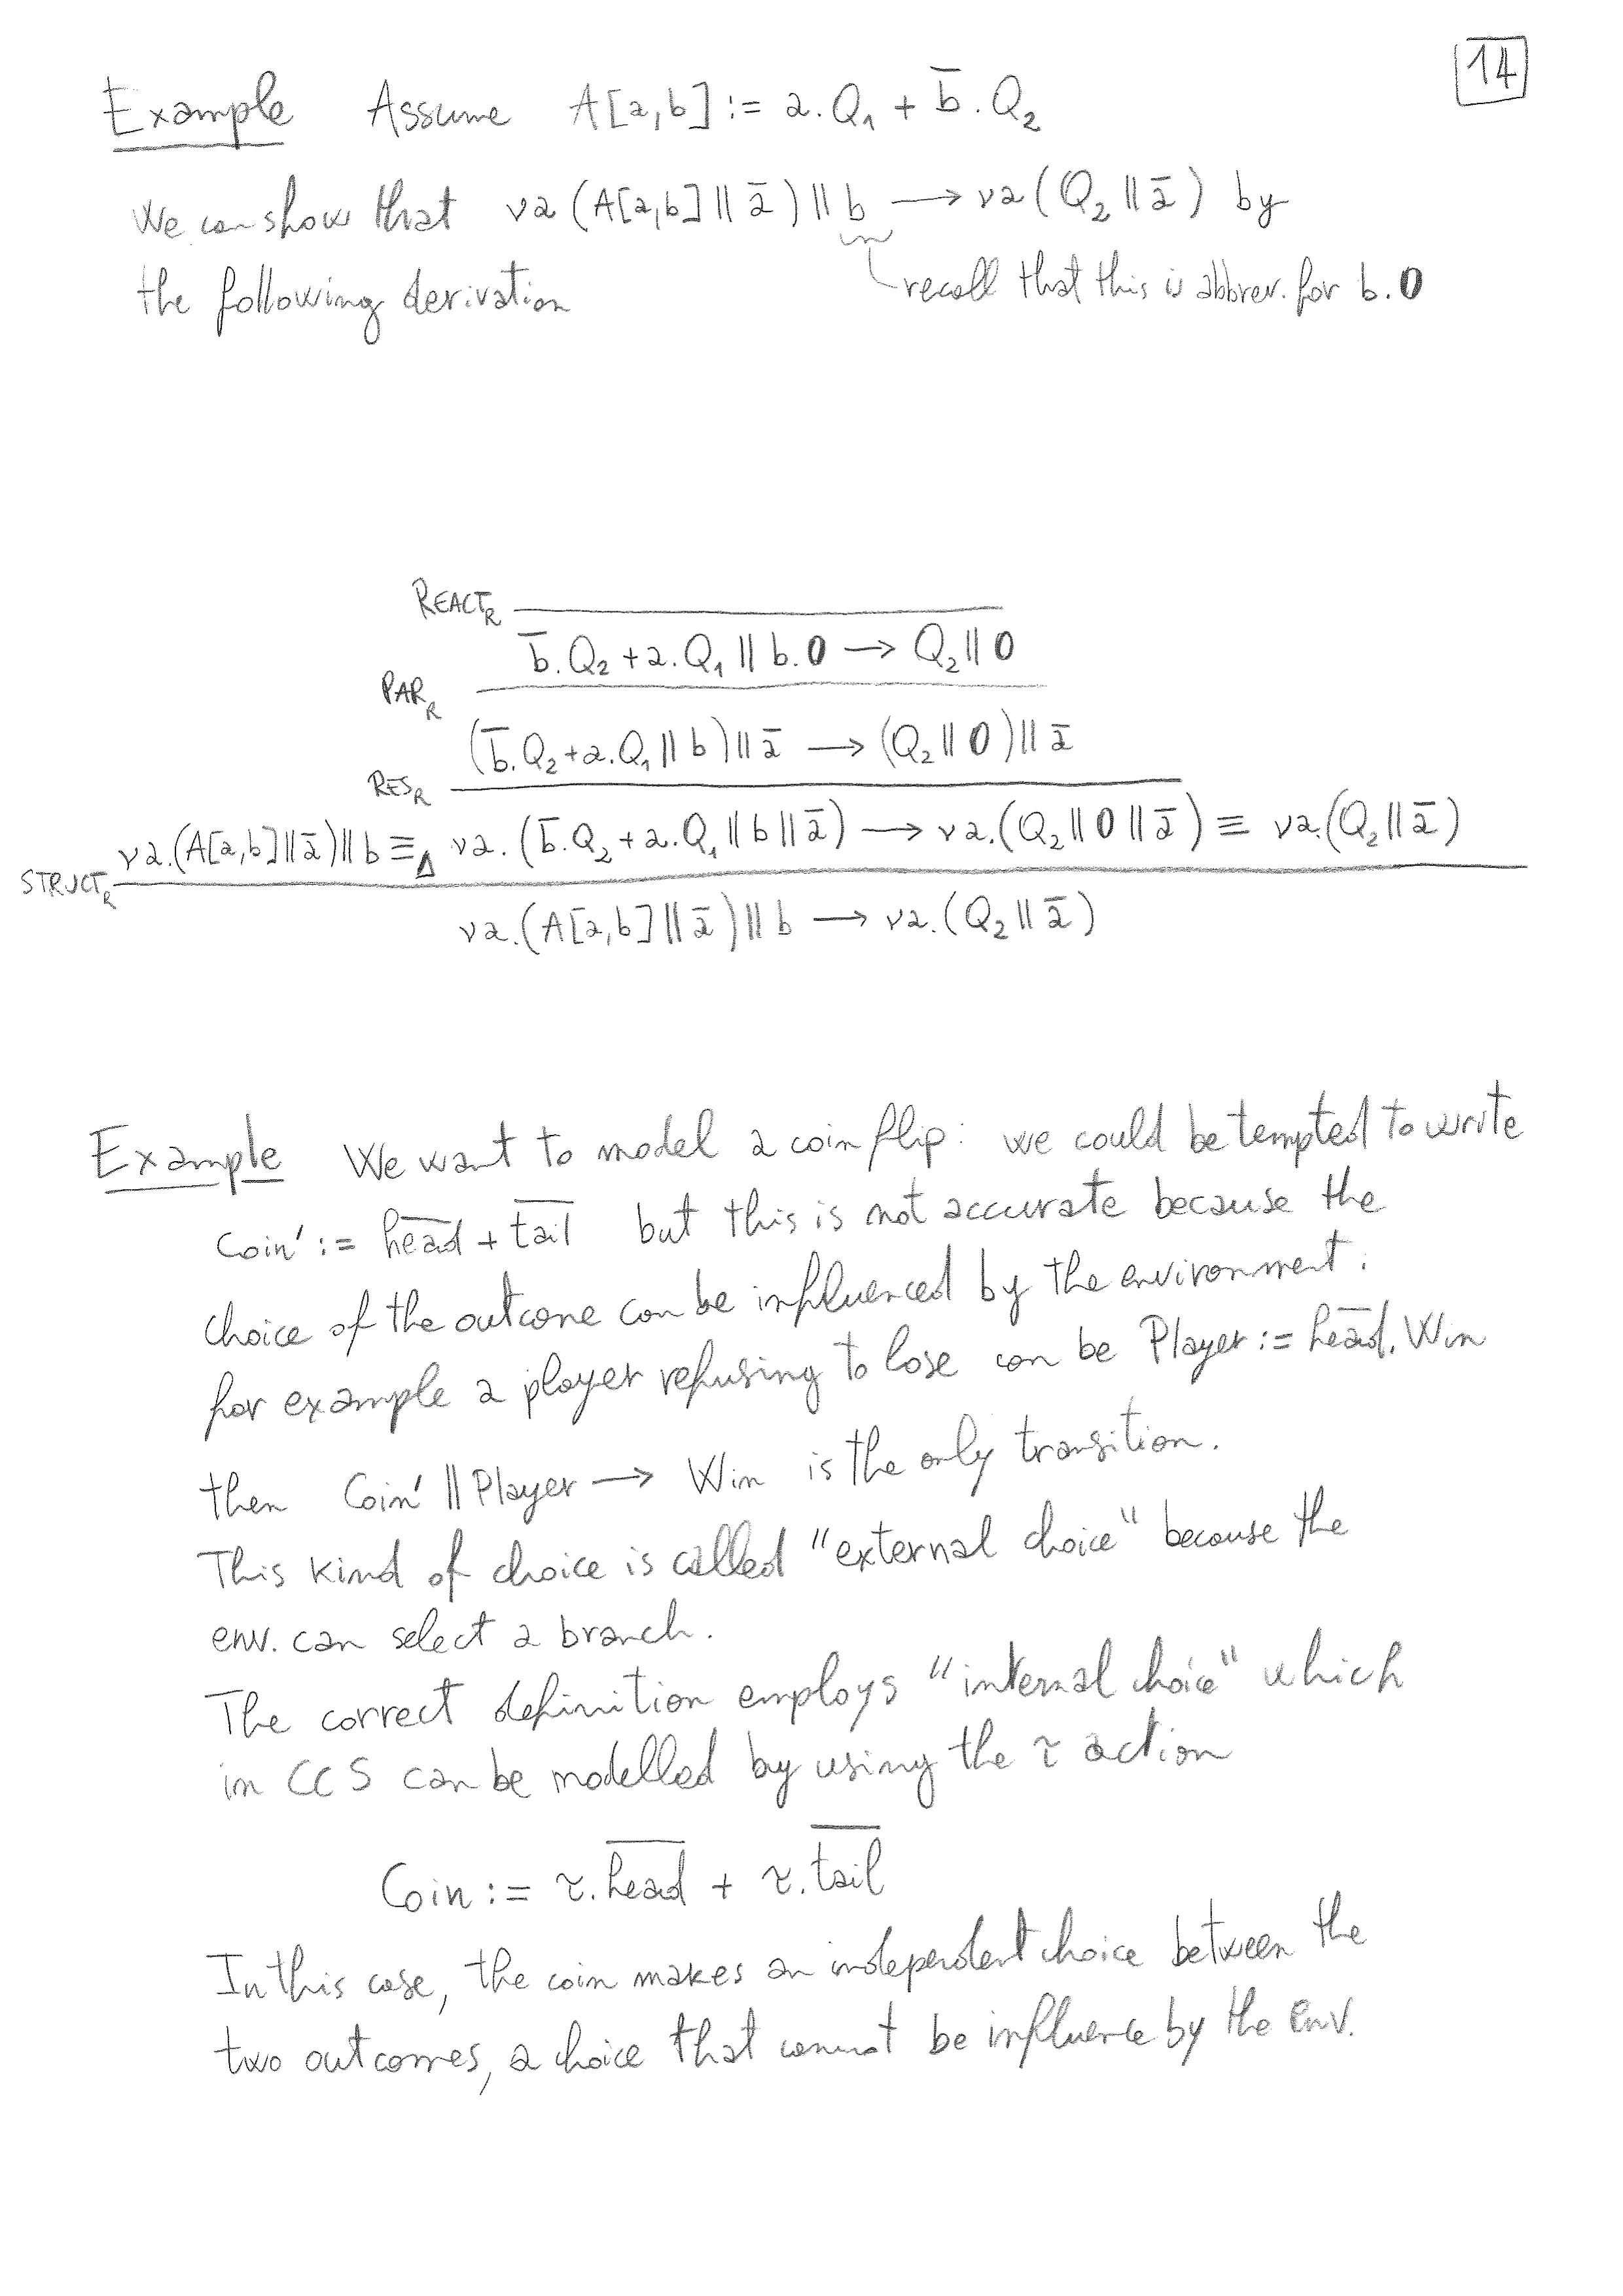 14
Example Assume A[a,b] := a.Q₁ + b̅.Q₂
We can show that νa(A[a,b] ∥ a̅) ∥ b ⟶ νa(Q₂ ∥ a̅) by
the following derivation
recall that this is abbrev. for b.0
REACT_R
b̅.Q₂ + a.Q₁ ∥ b.0 ⟶ Q₂ ∥ 0
PAR_R
(b̅.Q₂ + a.Q₁ ∥ b) ∥ a̅ ⟶ (Q₂ ∥ 0) ∥ a̅
RES_R
νa.(A[a,b] ∥ a̅) ∥ b ≡_Δ νa.(b̅.Q₂ + a.Q₁ ∥ b ∥ a̅) ⟶ νa.(Q₂ ∥ 0 ∥ a̅) ≡ νa.(Q₂ ∥ a̅)
STRUCT_R
νa.(A[a,b] ∥ a̅) ∥ b ⟶ νa.(Q₂ ∥ a̅)
Example We want to model a coin flip: we could be tempted to write
Coin' := h̅e̅a̅d̅ + t̅a̅i̅l̅ but this is not accurate because the
choice of the outcome can be influenced by the environment:
for example a player refusing to lose can be Player := h̅e̅a̅d̅.Win
then Coin' ∥ Player ⟶ Win is the only transition.
This kind of choice is called "external choice" because the
env. can select a branch.
The correct definition employs "internal choice" which
in CCS can be modelled by using the τ action
Coin := τ.h̅e̅a̅d̅ + τ.t̅a̅i̅l̅
In this case, the coin makes an independent choice between the
two outcomes, a choice that cannot be influence by the env.